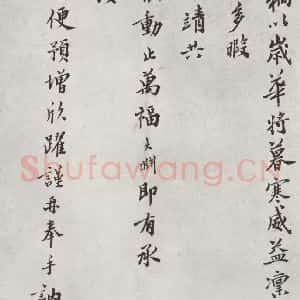 以歲華將暮寒威益凜
多暇
請共
動止萬福即有承
便預增欣躍謹再奉手
Shufawang.CN